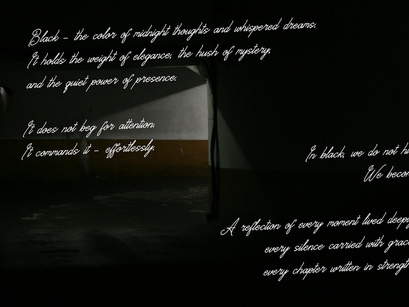 Black – the color of midnight thoughts and whispered dreams.
It holds the weight of elegance, the hush of mystery,
and the quiet power of presence.
It does not beg for attention.
It commands it – effortlessly.
In black, we do not
We
A reflection of every moment lived
every silence carried with
every chapter written in